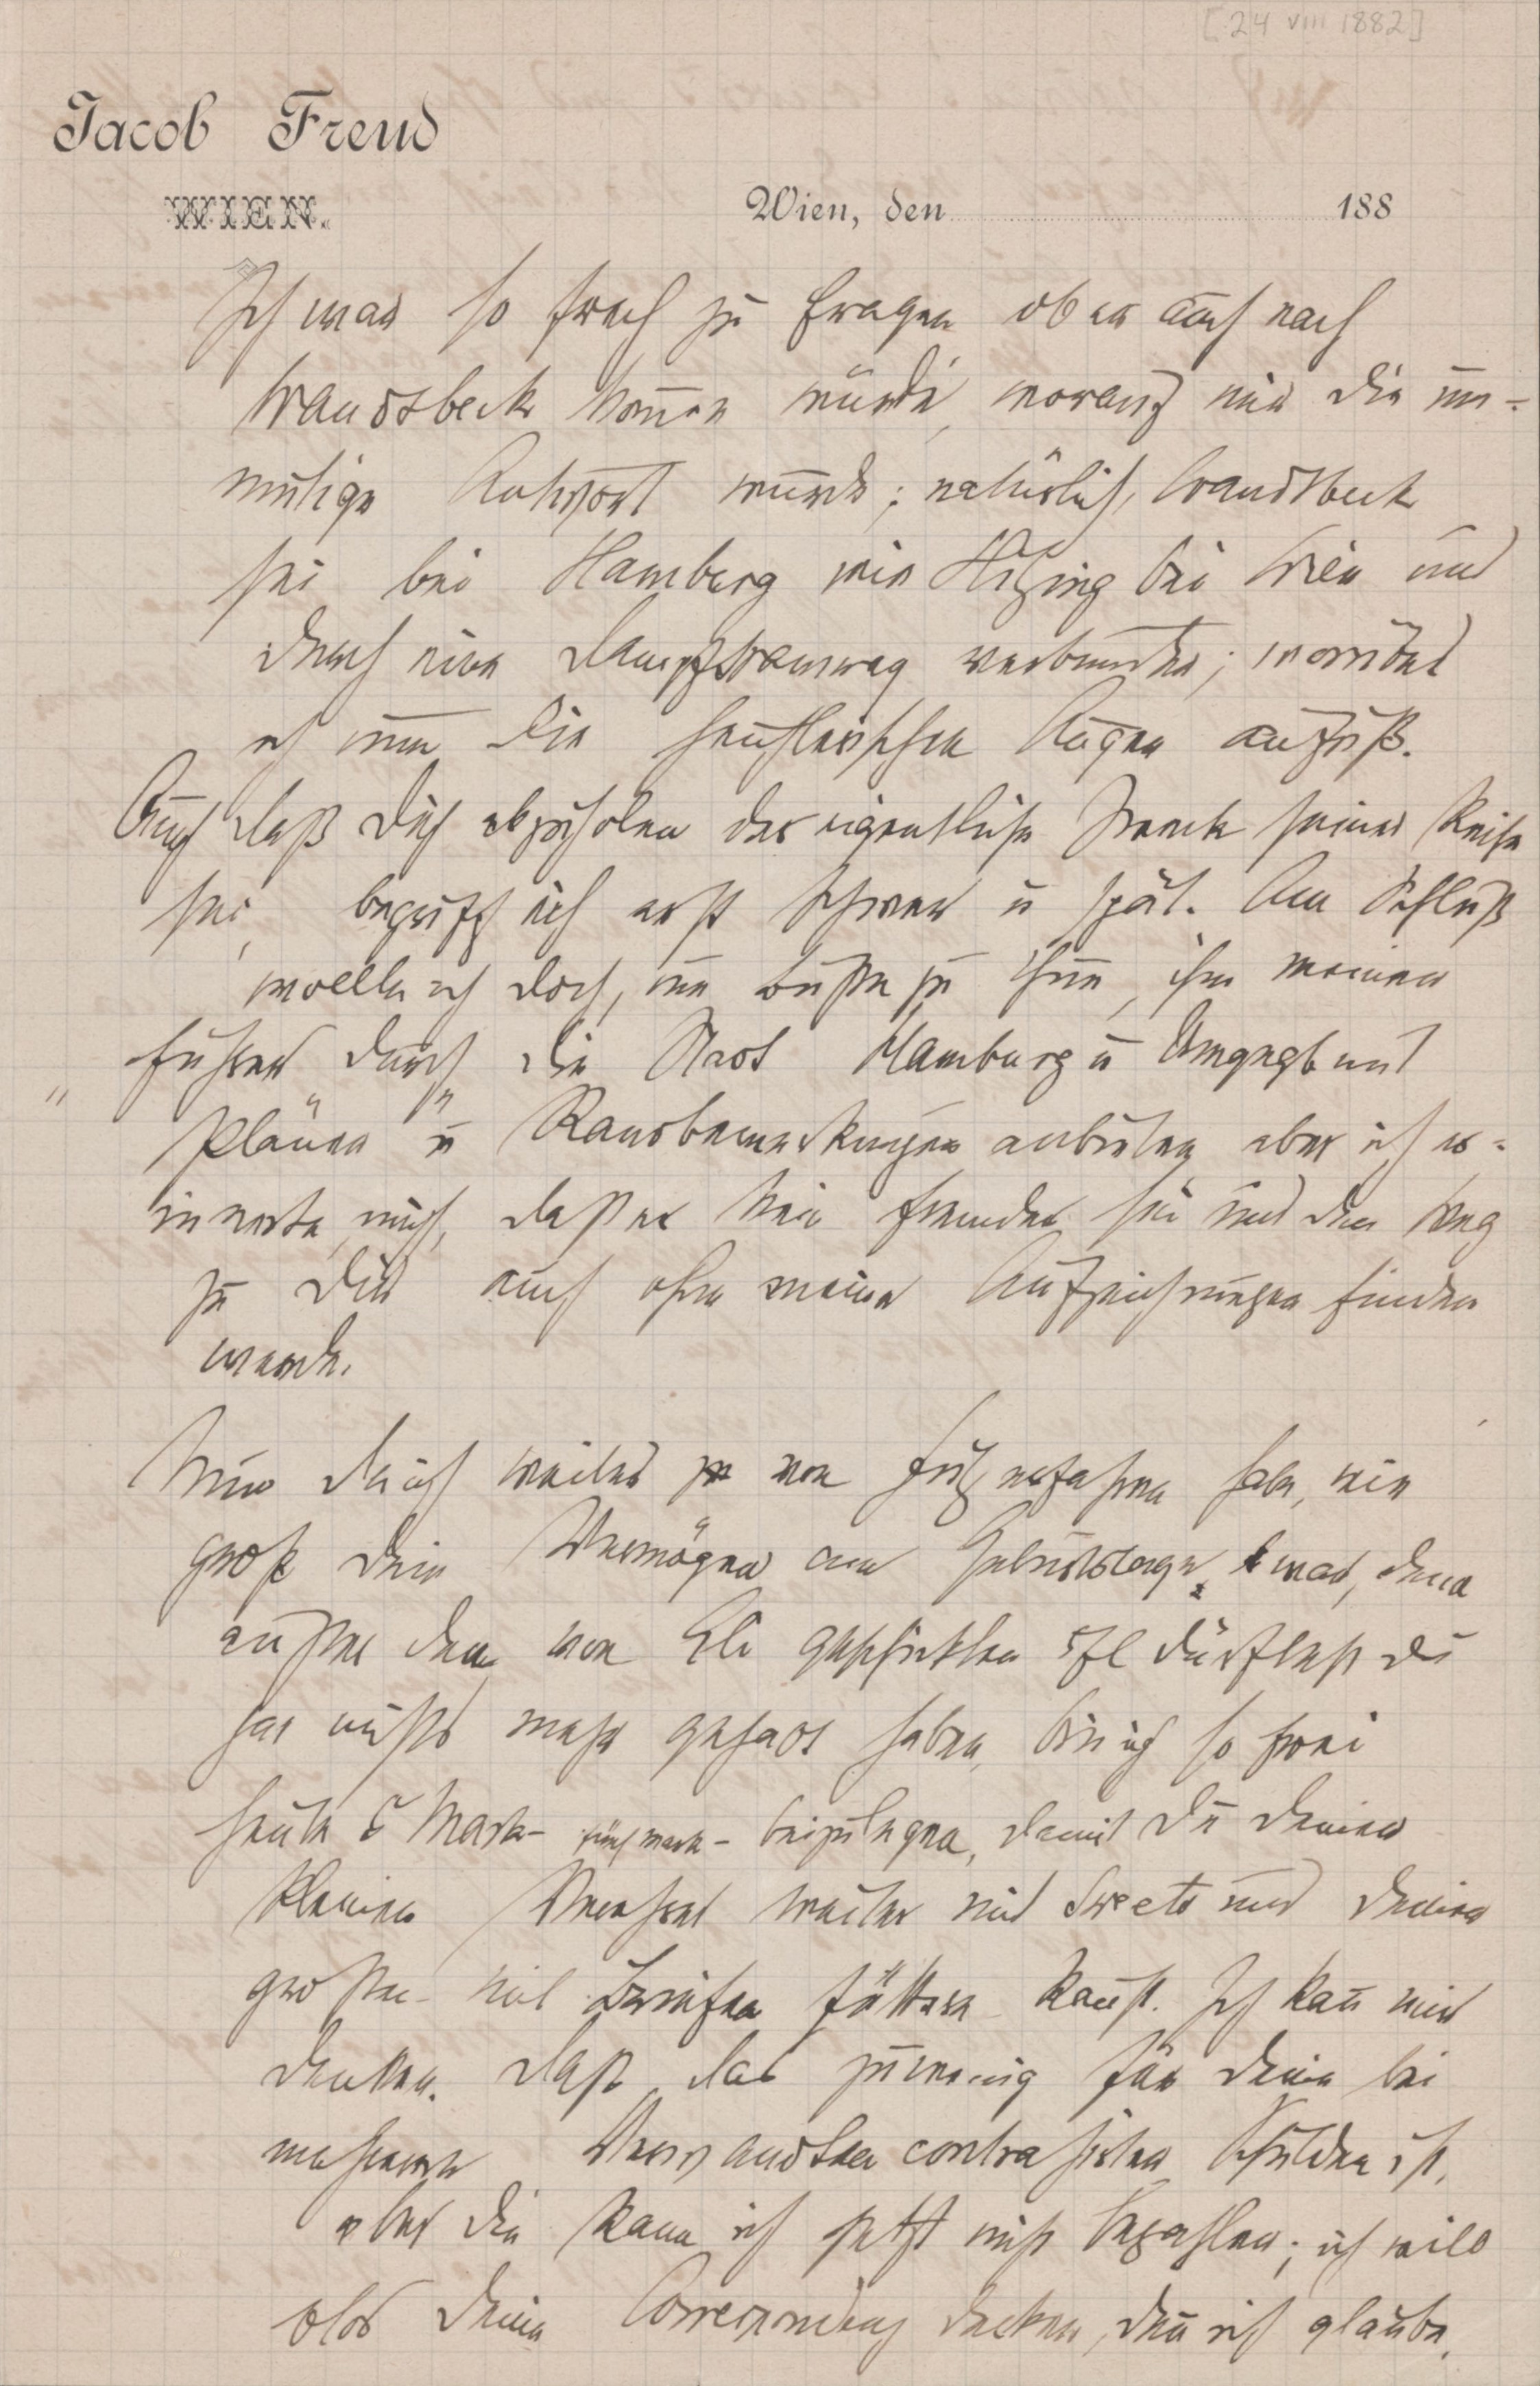 [24 VIII 1882]
Jacob Freud
WIEN.
Wien, den 188
Ich war so frech zu fragen ob er auch nach
Wandsbeck kom̄en würde, worauf mir die un-
mutige Antwort wurde; natürlich, Wandsbeck
sei bei Hamburg wie Hitzing bei Wien und
durch eine Dampftramway verbunden; worüber
ich nun die heuchlerischen Augen aufriß.
Auch daß Dich abzuholen der eigentliche Zweck seiner Reise
sei, begriff ich erst schwer u spät. Am Schluß
wollte ich doch, um Buße zu thun, ihm meinen
„Führer durch die Stadt Hamburg u Umgegb mit
Plänen“ u Randbemerkungen anbieten aber ich er-
innerte mich, daß er kein Fremder sei und den Weg
zu Dir auch ohne meine Aufzeichnungen finden
werde.
Nun da ich weiter von Fritz erfahren habe, wie
groß Dein Vermögen am Geburtstage war, denn
außer den von Eli geschickten 5fl dürftest du
gar nichts mehr gehabt haben, bin ich so frei
heute 5 Mark – fünf Mark – beizulegen, damit Du Deinen
kleinen Verehrer weiter mit Sweets und Deinen
großen mit Briefen füttern kan̄st. Ich kan̄ mir
denken, daß das zu wenig für Deine bei
mehreren Verwandten contrahirten Schulden ist,
aber die kann ich jetzt nicht bezahlen; ich will
blos Deine Correspondenz decken, den̄ ich glaube,